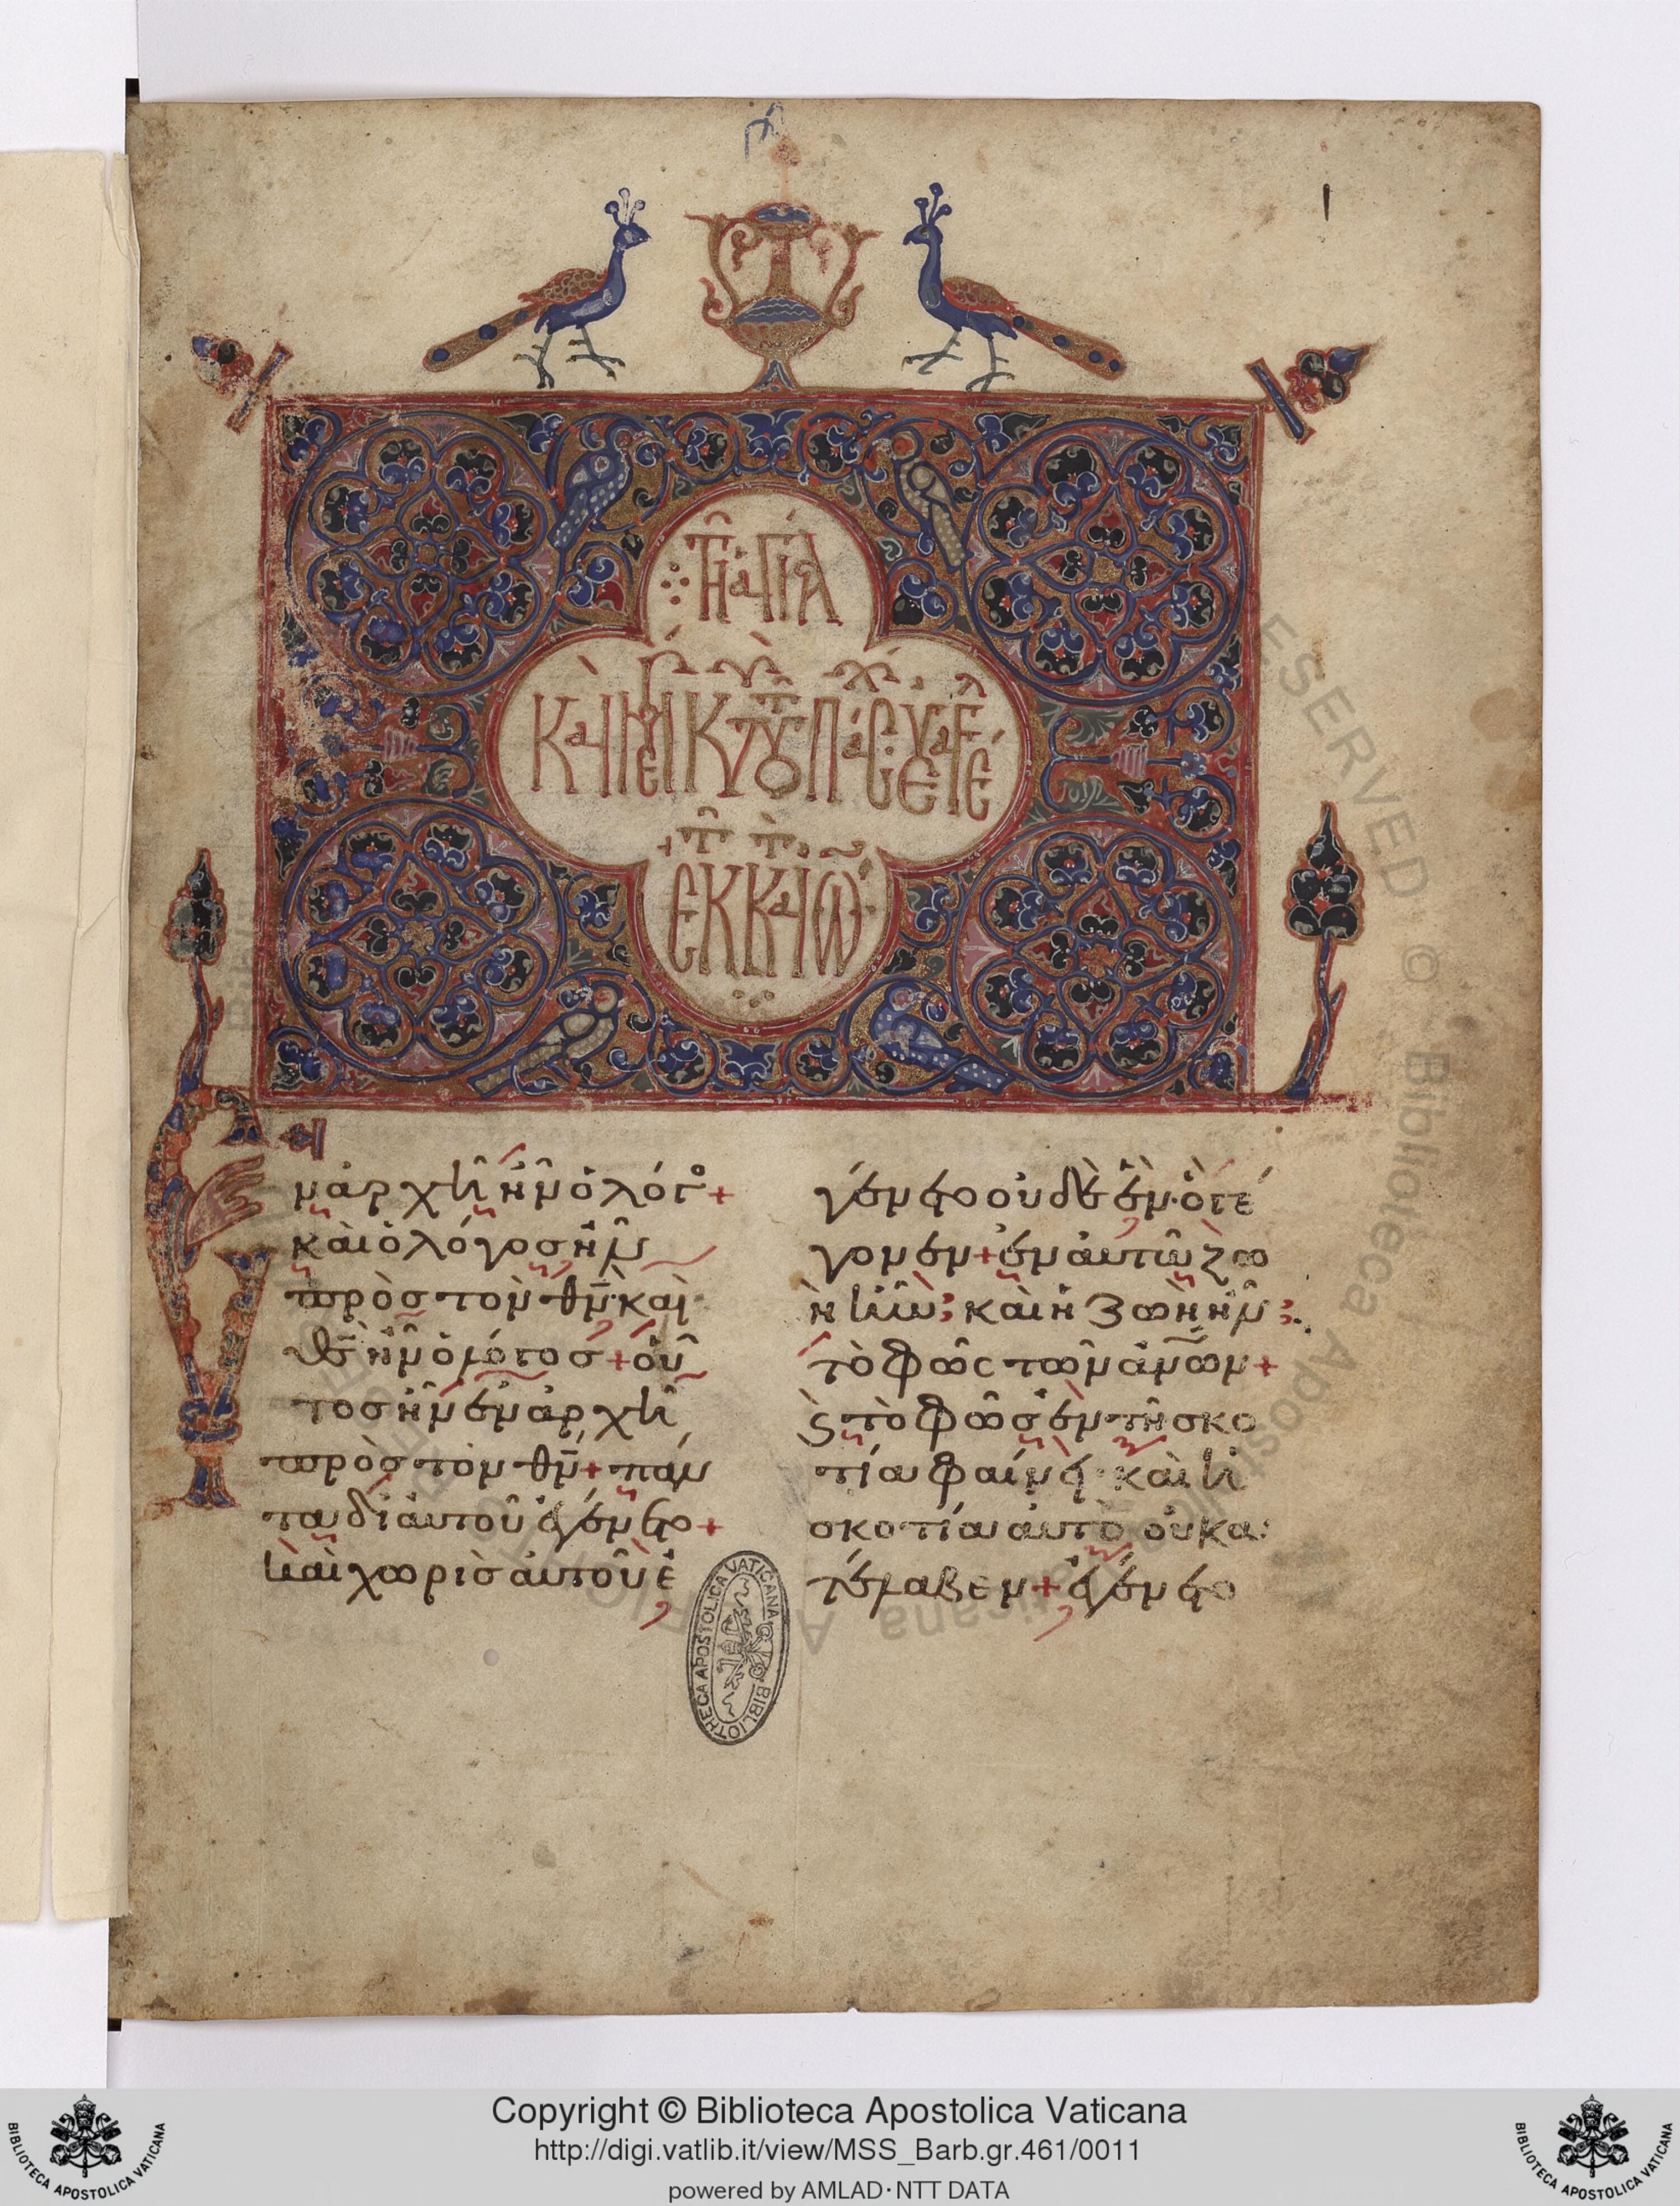 τῆ ἁγία
καὶ μεγ κυ τοῦ πάσχ εὐαγγέλ
ἐκ τοῦ κατ ἰω
ν ἀρχῆ ἦν ὁ λόγος +
καὶ ὁ λόγος ἦν
πρὸς τὸν θν· καὶ
θς ἦν ὁ λόγος + οὗ
τος ἦν ἐν ἀρχῆ
πρὸς τὸν θν + πάν
τα δι αὐτοῦ ἐγένετο +
καὶ χωρὶς αὐτοῦ ἐ
γένετο οὐδὲ ἕν· ὃ γέ
γονεν + ἐν αὐτῶ ζω
ὴ ἦν· καὶ ἡ ζωὴ ἦν
τὸ φῶς τῶν ἀνων +
ϛ τὸ φῶς ἐν τῆ σκο
τία φαίνει· καὶ ἡ
σκοτία αὐτὸ οὐ κα
τέλαβεν + ἐγένετο
BIBLIOTHECA APOSTOLICA VATICANA
Copyright © Biblioteca Apostolica Vaticana
http://digi.vatlib.it/view/MSS_Barb.gr.461/0011
powered by AMLAD·NTT DATA
BIBLIOTECA APOSTOLICA VATICANA
BIBLIOTECA APOSTOLICA VATICANA